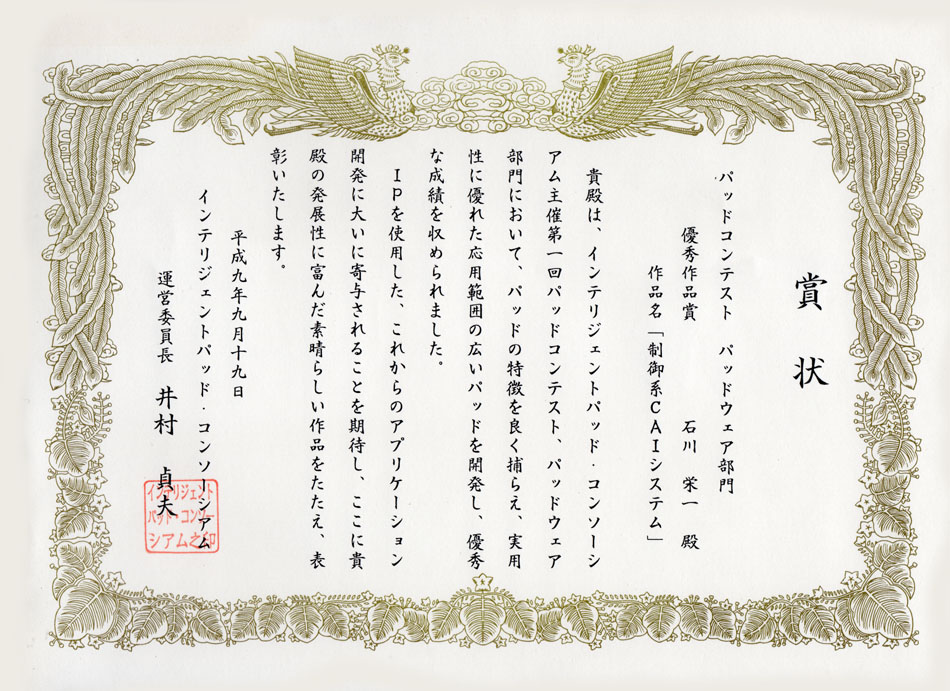 賞状
パッドコンテスト　パッドウェア部門
優秀作品賞　石川　栄一　殿
作品名「制御系ＣＡＩシステム」
貴殿は、インテリジェントパッド・コンソーシ
アム主催第一回パッドコンテスト、パッドウェア
部門において、パッドの特徴を良く捕らえ、実用
性に優れた応用範囲の広いパッドを開発し、優秀
な成績を収められました。
ＩＰを使用した、これからのアプリケーション
開発に大いに寄与されることを期待し、ここに貴
殿の発展性に富んだ素晴らしい作品をたたえ、表
彰いたします。
平成九年九月十九日
インテリジェントパッド・コンソーシアム
運営委員長　井村　貞夫
インテリジェント
パット・コンソー
シアム之印